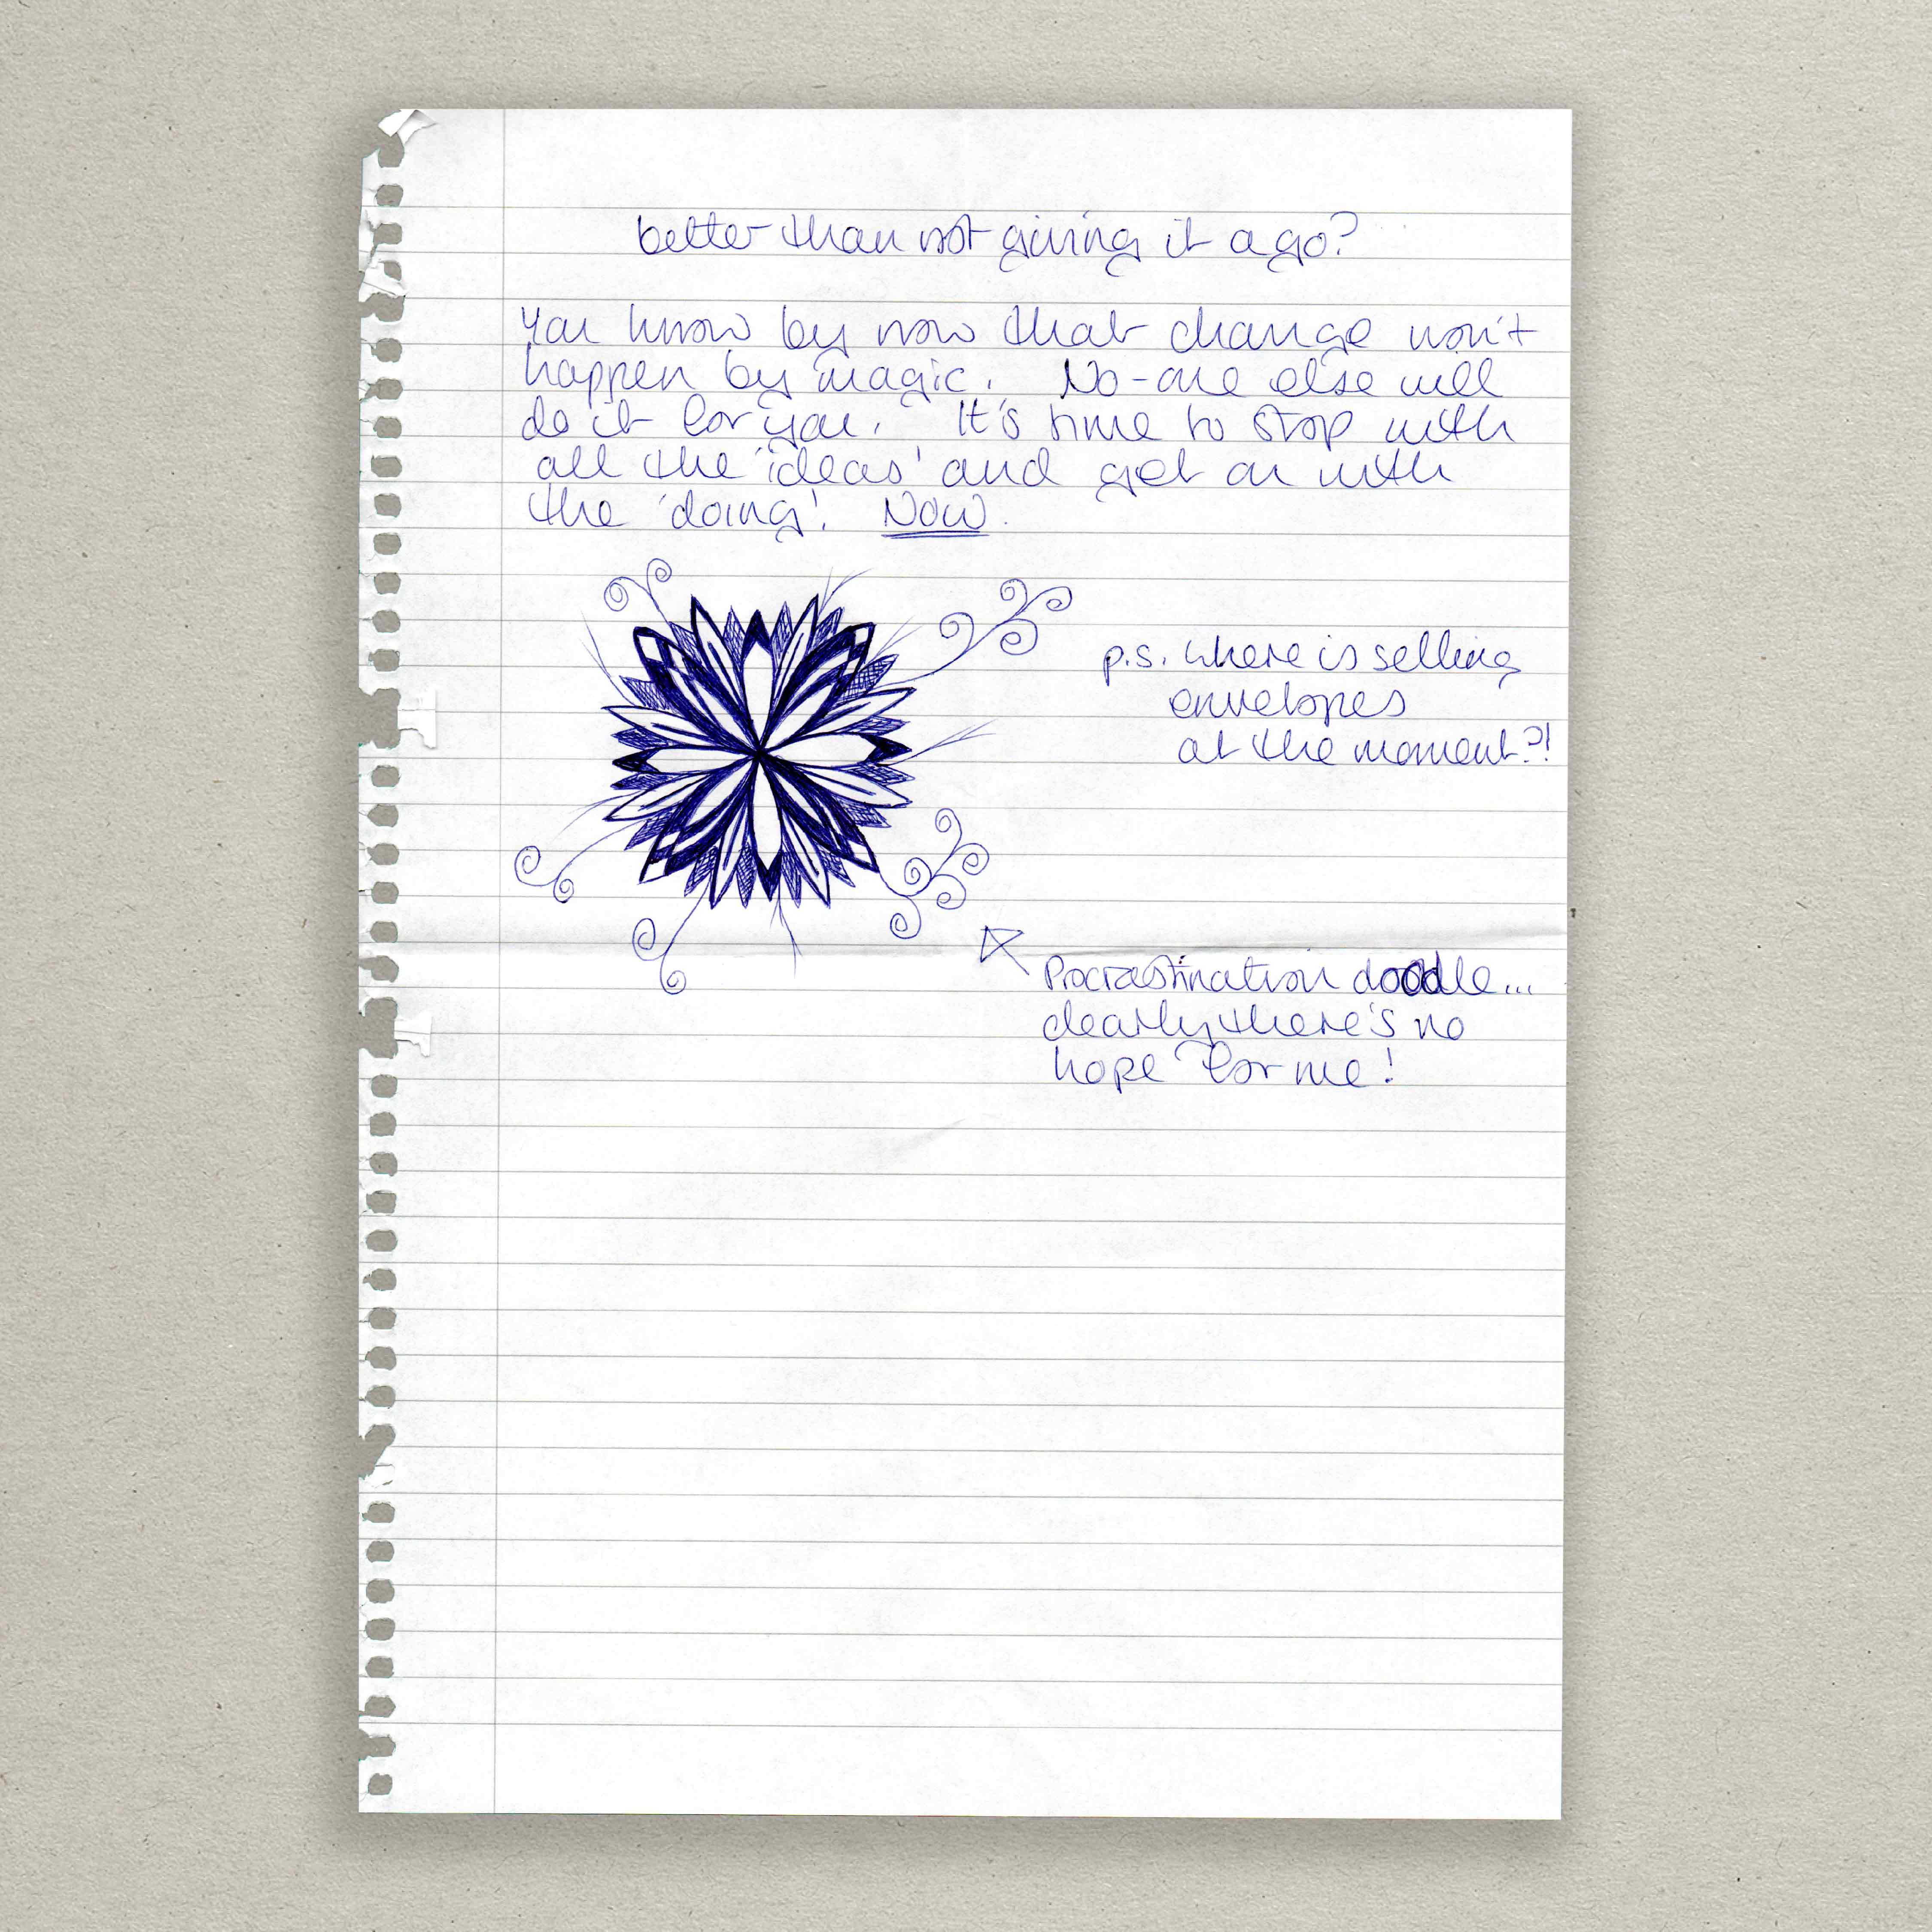 better than not giving it a go?
You know by now that change won't
happen by magic. No-one else will
do it for you. It's time to stop with
all the 'ideas' and get on with
the 'doing'. Now.
p.s. where is selling
envelopes
at the moment?!
Procrastination doodle...
clearly there's no
hope for me!